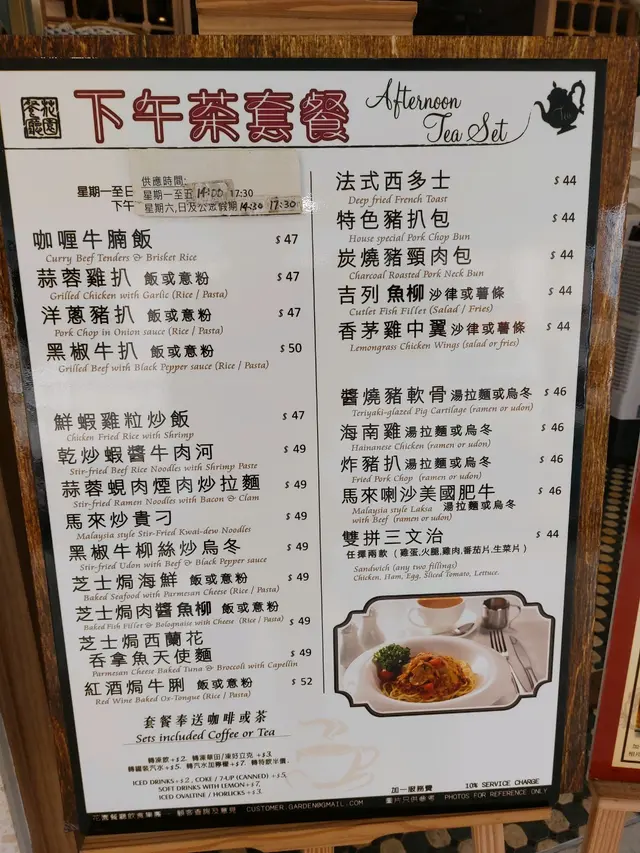 花園餐廳
下午茶套餐
Afternoon
Tea Set
供應時間:
星期一至日
星期一至五 14:00 17:30
下午
星期六,日及公眾假期 14:30 17:30
咖喱牛腩飯 $ 47
Curry Beef Tenders & Brisket Rice
蒜蓉雞扒 飯或意粉 $ 47
Grilled Chicken with Garlic (Rice / Pasta)
洋蔥豬扒 飯或意粉 $ 47
Pork Chop in Onion sauce (Rice / Pasta)
黑椒牛扒 飯或意粉 $ 50
Grilled Beef with Black Pepper sauce (Rice / Pasta)
鮮蝦雞粒炒飯 $ 47
Chicken Fried Rice with Shrimp
乾炒蝦醬牛肉河 $ 49
Stir-fried Beef Rice Noodles with Shrimp Paste
蒜蓉蜆肉煙肉炒拉麵 $ 49
Stir-fried Ramen Noodles with Bacon & Clam
馬來炒貴刁 $ 49
Malaysia style Stir-Fried Kwai-dew Noodles
黑椒牛柳絲炒烏冬 $ 49
Stir-fried Udon with Beef & Black Pepper sauce
芝士焗海鮮 飯或意粉 $ 49
Baked Seafood with Parmesan Cheese (Rice / Pasta)
芝士焗肉醬魚柳 飯或意粉
Baked Fish Fillet & Bolognaise with Cheese (Rice / Pasta) $ 49
芝士焗西蘭花
吞拿魚天使麵 $ 49
Parmesan Cheese Baked Tuna & Broccoli with Capellin
紅酒焗牛脷 飯或意粉 $ 52
Red Wine Baked Ox-Tongue (Rice / Pasta)
套餐奉送咖啡或茶
Sets included Coffee or Tea
轉凍飲+$2. 轉凍華田/凍好立克 +$3.
轉罐裝汽水+$5. 轉汽水加檸檬+$7. 轉特飲半價.
ICED DRINKS+$2, COKE / 7UP (CANNED) +$5,
SOFT DRINKS WITH LEMON+$7,
ICED OVALTINE / HORLICKS +$3.
法式西多士 $ 44
Deep fried French Toast
特色豬扒包 $ 44
House special Pork Chop Bun
炭燒豬頸肉包 $ 44
Charcoal Roasted Pork Neck Bun
吉列魚柳 沙律或薯條 $ 44
Cutlet Fish Fillet (Salad / Fries)
香茅雞中翼 沙律或薯條 $ 44
Lemongrass Chicken Wings (salad or fries)
醬燒豬軟骨 湯拉麵或烏冬 $ 46
Teriyaki-glazed Pig Cartilage (ramen or udon)
海南雞 湯拉麵或烏冬 $ 46
Hainanese Chicken (ramen or udon)
炸豬扒 湯拉麵或烏冬 $ 46
Fried Pork Chop (ramen or udon)
馬來喇沙美國肥牛 $ 46
湯拉麵或烏冬
Malaysia style Laksa
with Beef (ramen or udon)
雙拼三文治 $ 44
任擇兩款 (雞蛋,火腿,雞肉,番茄片,生菜片)
Sandwich (any two fillings)
Chicken, Ham, Egg, Sliced Tomato, Lettuce.
加一服務費 10% SERVICE CHARGE
圖片只供參考 PHOTOS FOR REFERENCE ONLY
花園餐廳飲食集團 顧客查詢及意見 CUSTOMER.GARDEN@GMAIL.COM